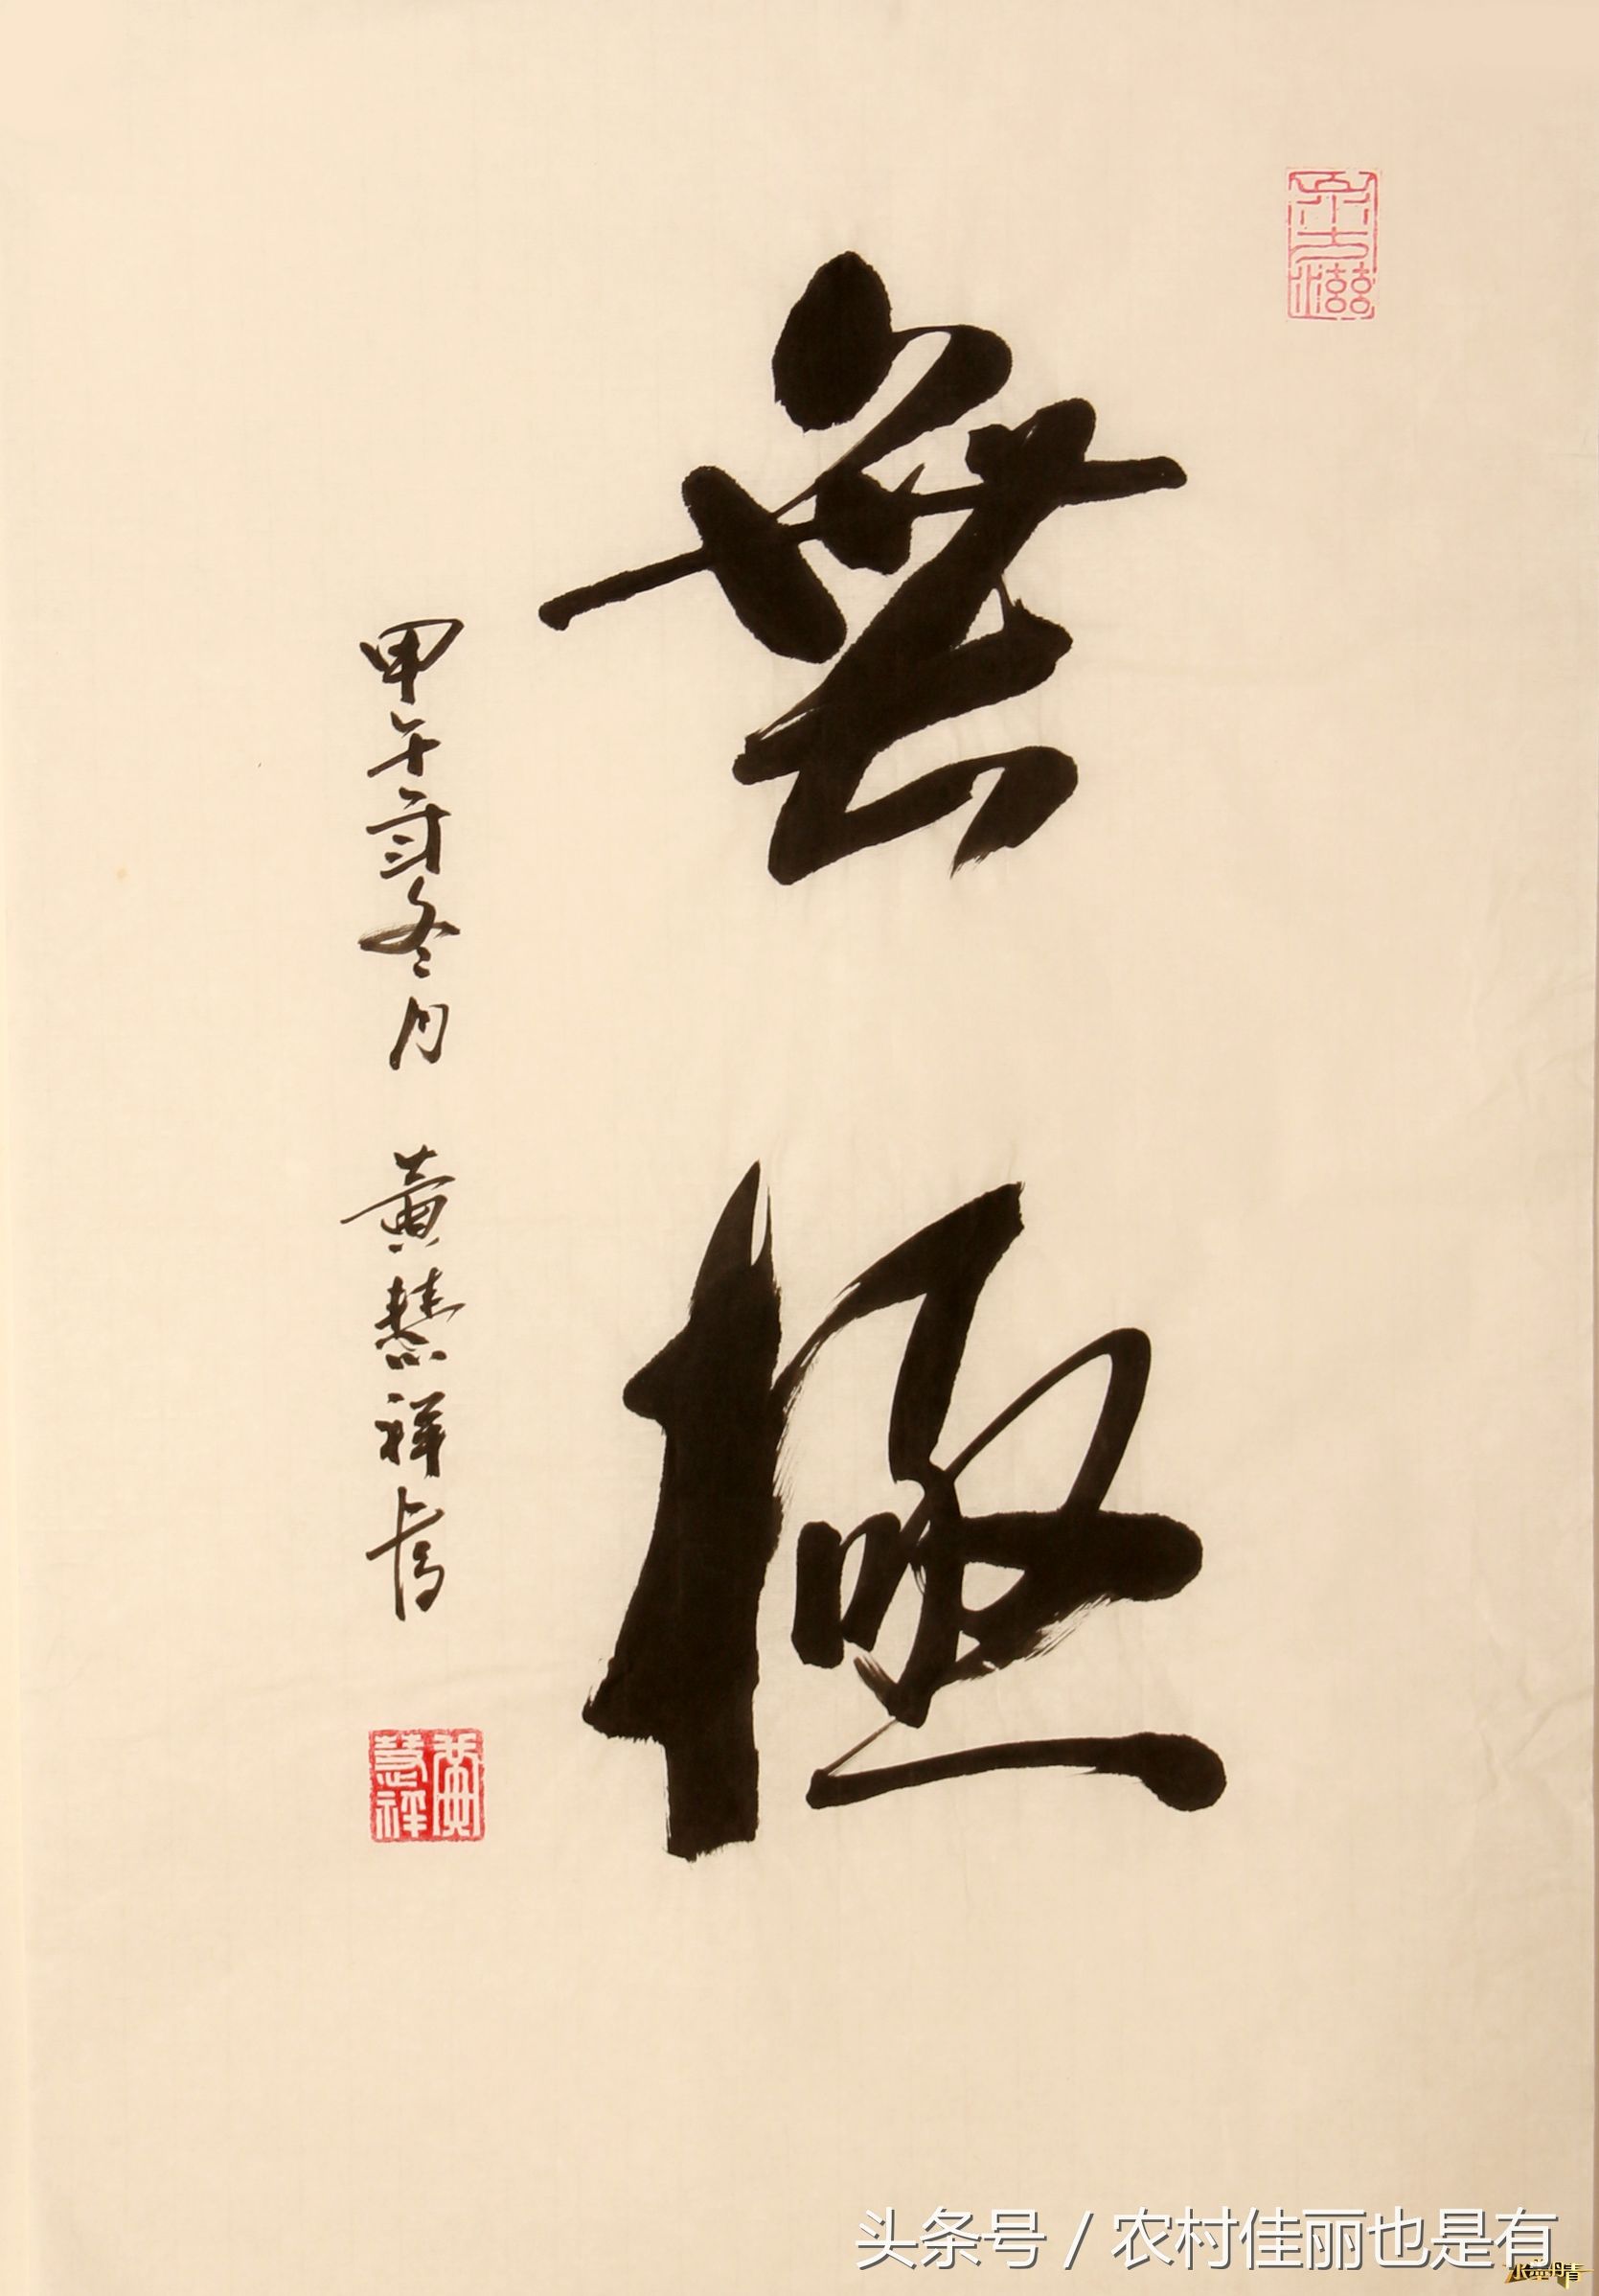 無極
甲午年冬月 黃慧祥書
黃慧祥
头条号 / 农村佳丽也是有